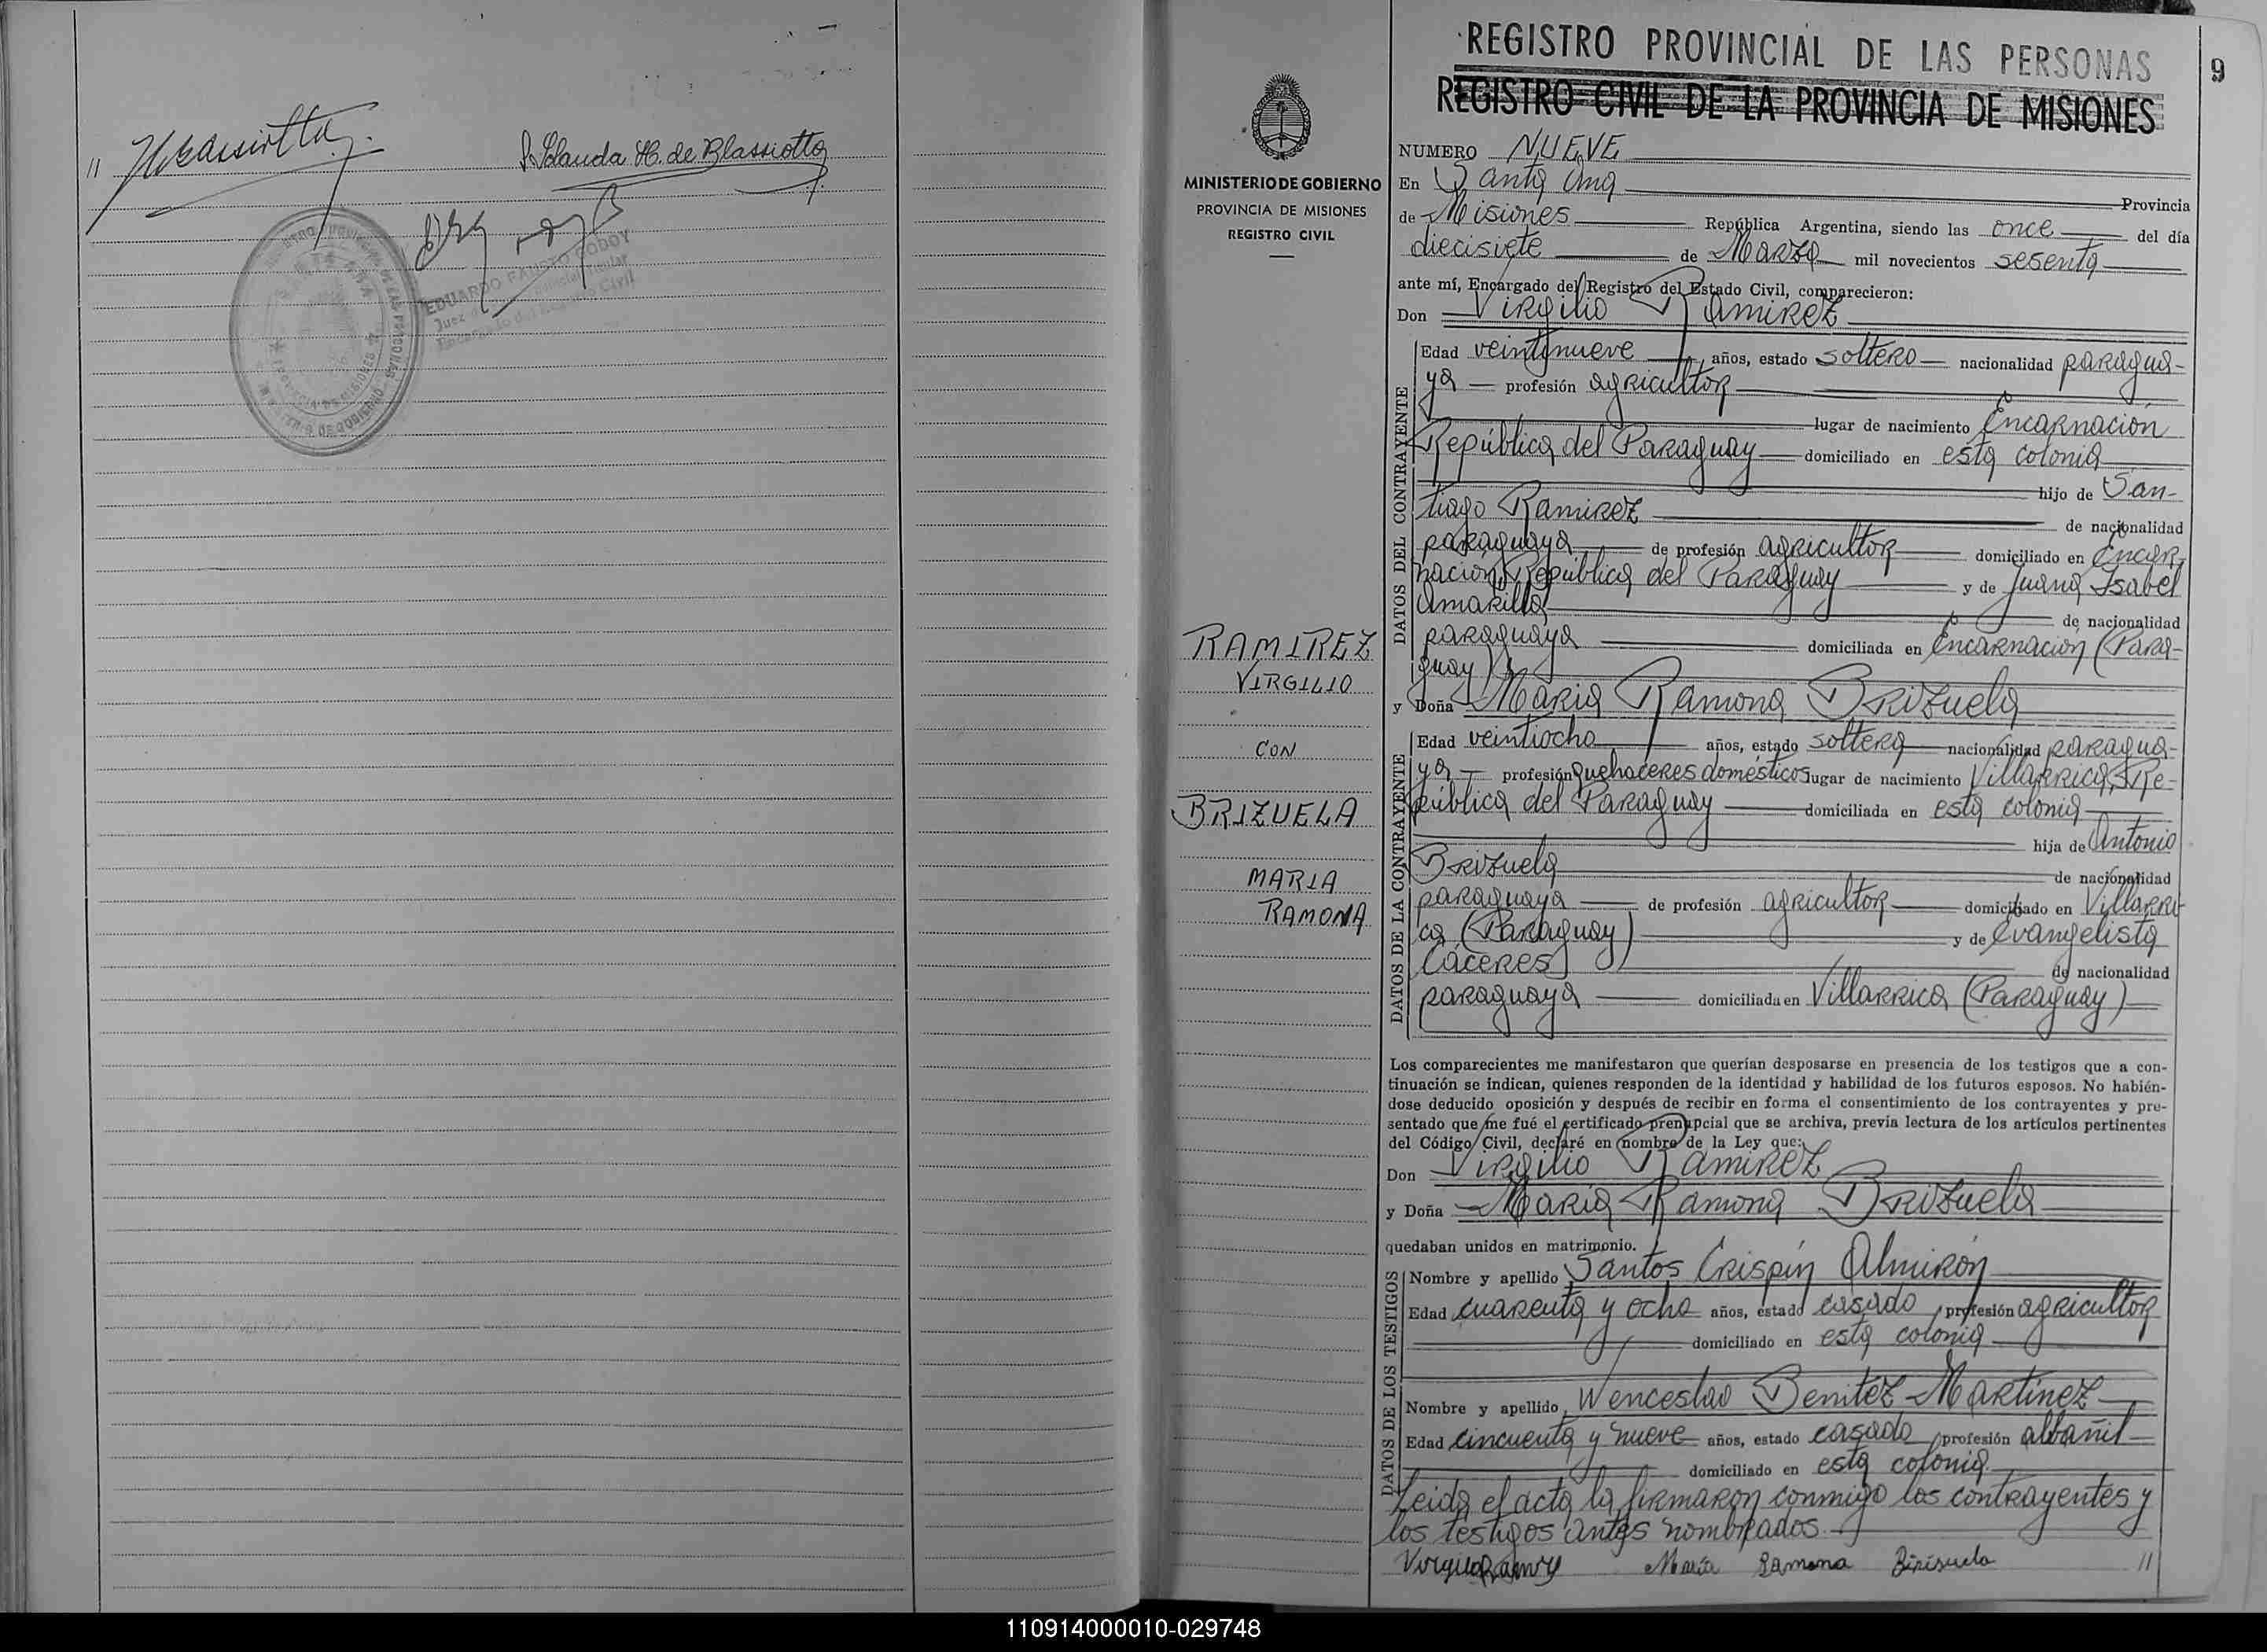 //
S. Yolanda H. de Blassiotto
EDUARDO FAUSTO GODOY
Juez
Encargado del Registro Civil
MINISTERIO DE GOBIERNO
PROVINCIA DE MISIONES
REGISTRO CIVIL
RAMIREZ
VIRGILIO
CON
BRIZUELA
MARIA
RAMONA
REGISTRO PROVINCIAL DE LAS PERSONAS
9
REGISTRO CIVIL DE LA PROVINCIA DE MISIONES
NUMERO NUEVE
En Santa Ana Provincia
de Misiones República Argentina, siendo las once del día
diecisiete de Marzo mil novecientos sesenta
ante mí, Encargado del Registro del Estado Civil, comparecieron:
Don Virgilio Ramirez
DATOS DEL CONTRAYENTE
Edad veintinueve años, estado soltero nacionalidad paragua-
ya profesión agricultor
lugar de nacimiento Encarnación
República del Paraguay domiciliado en esta colonia
hijo de San-
tiago Ramirez de nacionalidad
paraguaya de profesión agricultor domiciliado en Encar-
nación, República del Paraguay y de Juana Isabel
Amarilla de nacionalidad
paraguaya domiciliada en Encarnación (Para-
guay)
y Doña Maria Ramona Brizuela
DATOS DE LA CONTRAYENTE
Edad veintiocho años, estado soltera nacionalidad paragua-
ya profesión quehaceres domésticos lugar de nacimiento Villarrica, Re-
pública del Paraguay domiciliada en esta colonia
hija de Antonio
Brizuela de nacionalidad
paraguaya de profesión agricultor domiciliado en Villarri-
ca (Paraguay) y de Evangelista
Cáceres de nacionalidad
paraguaya domiciliada en Villarrica (Paraguay)
Los comparecientes me manifestaron que querían desposarse en presencia de los testigos que a con-
tinuación se indican, quienes responden de la identidad y habilidad de los futuros esposos. No habién-
dose deducido oposición y después de recibir en forma el consentimiento de los contrayentes y pre-
sentado que me fué el certificado prenupcial que se archiva, previa lectura de los artículos pertinentes
del Código Civil, declaré en nombre de la Ley que:
Don Virgilio Ramirez
y Doña Maria Ramona Brizuela
quedaban unidos en matrimonio.
DATOS DE LOS TESTIGOS
Nombre y apellido Santos Crispín Almirón
Edad cuarenta y ocho años, estado casado, profesión agricultor
domiciliado en esta colonia
Nombre y apellido Wenceslao Benitez Martínez
Edad cincuenta y nueve años, estado casado, profesión albañil
domiciliado en esta colonia.
Leida el acta la firmaron conmigo los contrayentes y
los testigos antes nombrados.
María Ramona Birisuela //
110914000010-029748